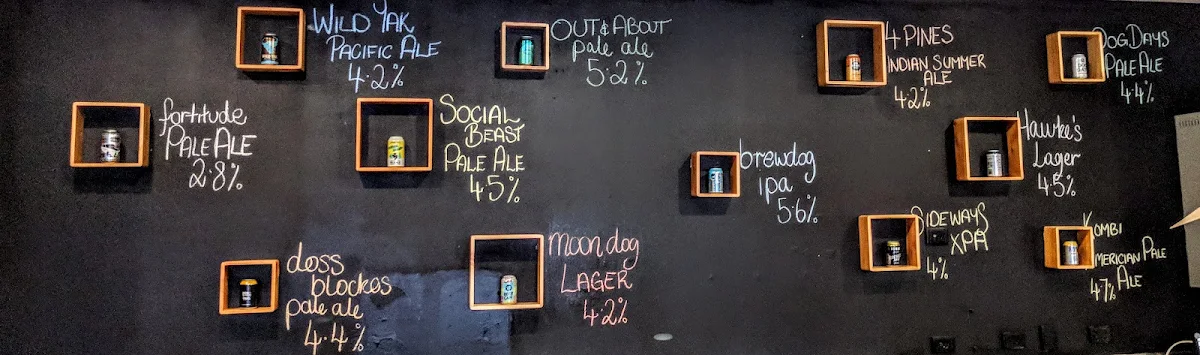 WILD YAK
PACIFIC ALE
4.2%
OUT & ABOUT
pale ale
5.2%
4 PINES
INDIAN SUMMER
ALE
4.2%
DOG DAYS
PALE ALE
4.4%
fortitude
PALE ALE
2.8%
SOCIAL
BEAST
PALE ALE
4.5%
brewdog
ipa
5.6%
Hawke's
Lager
4.5%
SIDEWAYS
XPA
4%
KOMBI
MERICIAN PALE
ALE
4.7%
doss
blockos
pale ale
4.4%
moon dog
LAGER
4.2%